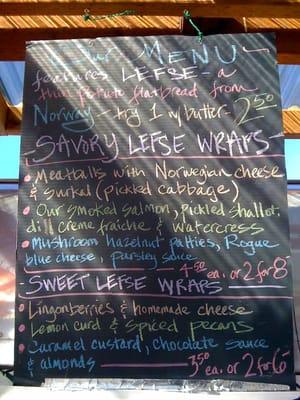 Our MENU
features LEFSE - a
thin potato flatbread from
Norway - try 1 w/ butter - 2.50
SAVORY LEFSE WRAPS
• Meatballs with Norwegian cheese
& surkal (pickled cabbage)
• Our smoked salmon, pickled shallot,
dill creme fraiche & watercress
• Mushroom hazelnut patties, Rogue
blue cheese, parsley sauce
4.50 ea. or 2 for 8-
- SWEET LEFSE WRAPS -
• Lingonberries & homemade cheese
• Lemon curd & spiced pecans
• Caramel custard, chocolate sauce
& almonds - 3.50 ea. or 2 for 6-